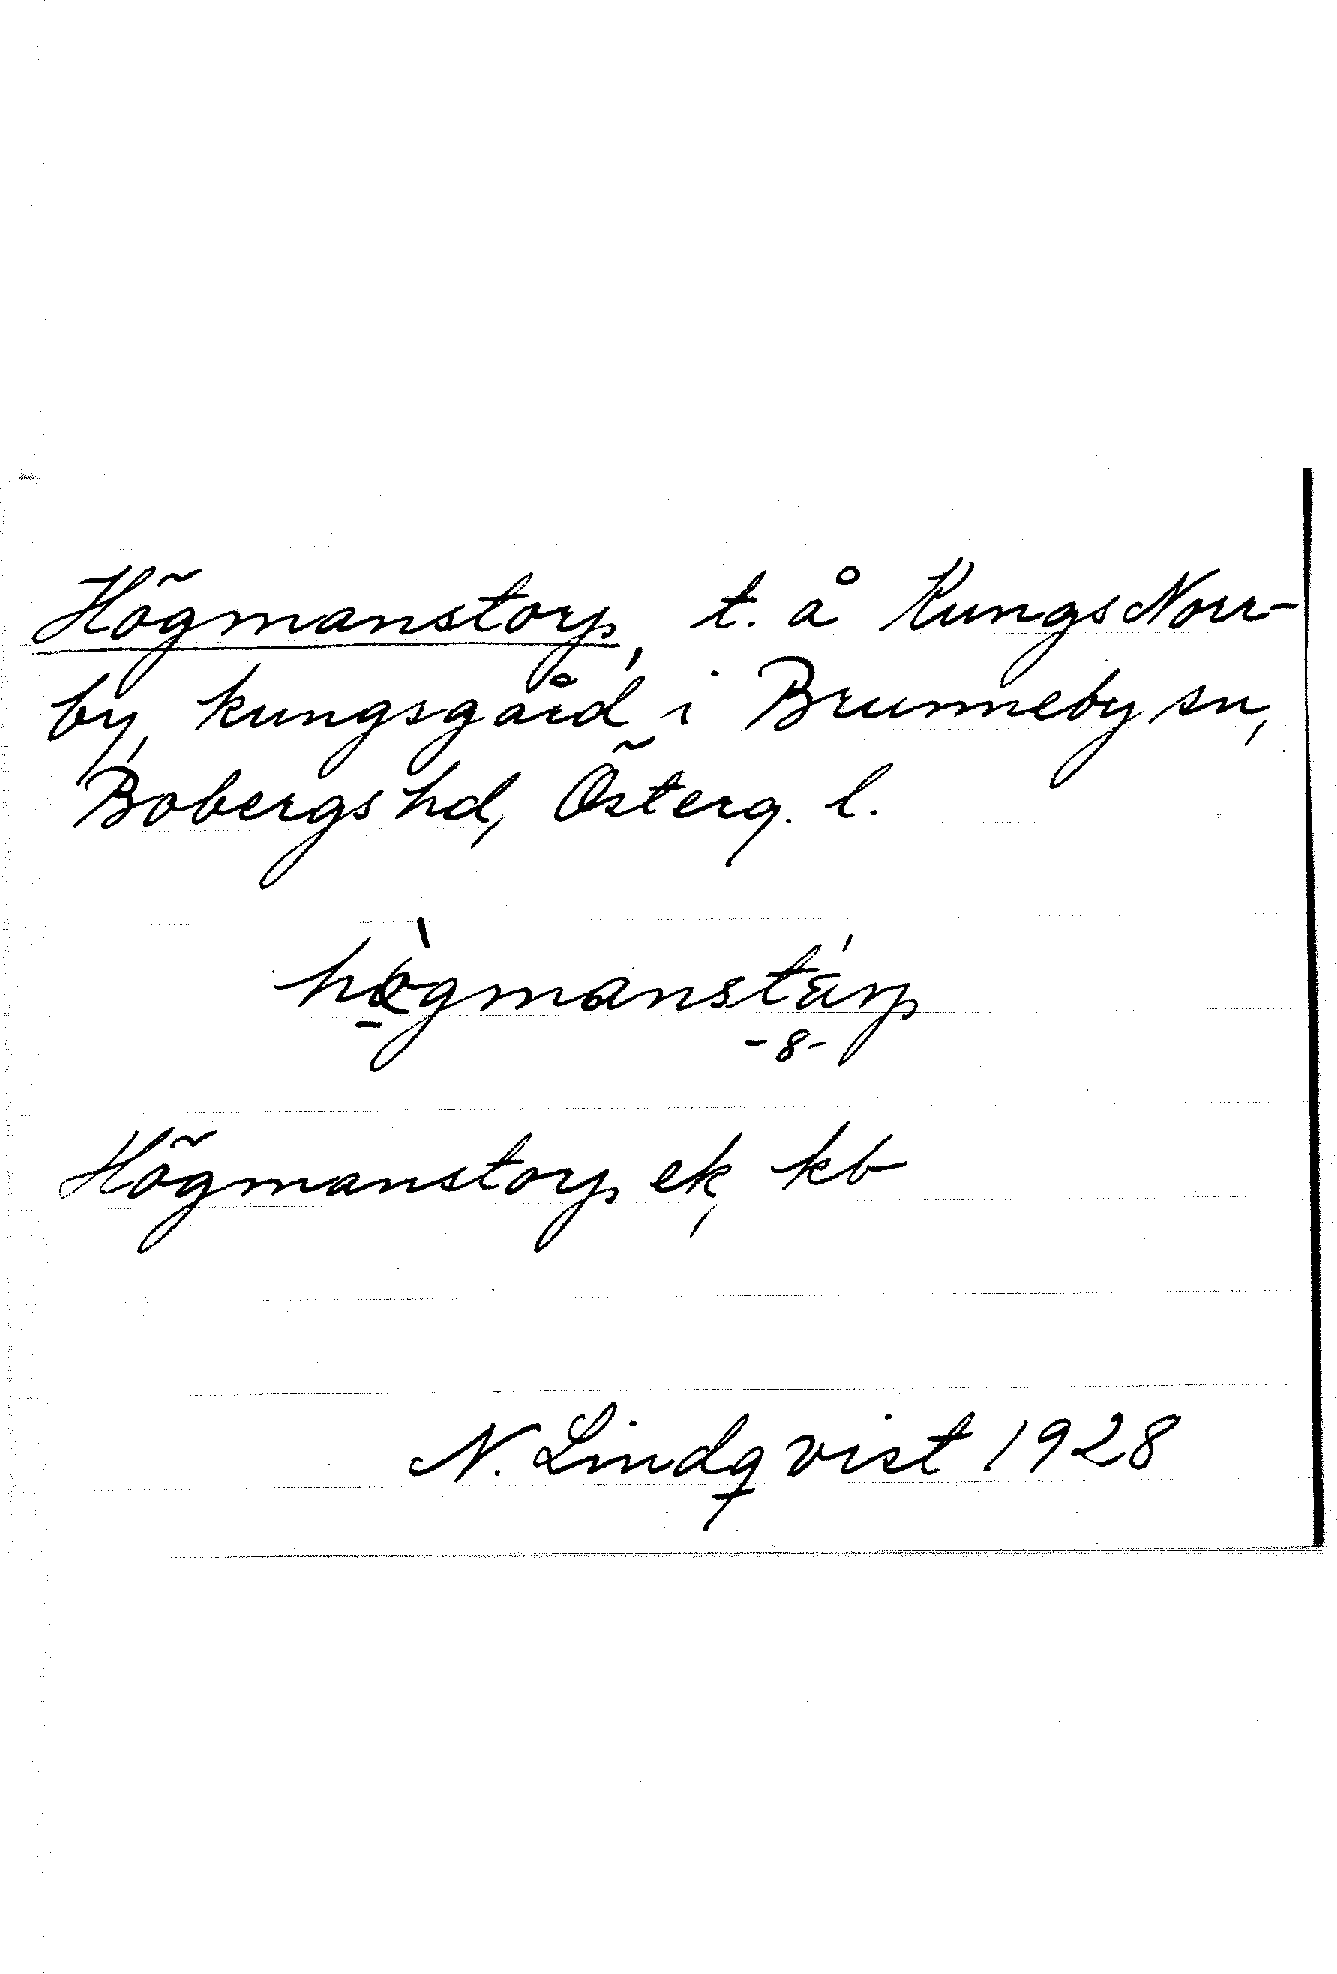 Högmanstorp, t. å Kungs Norr-
by kungsgård i Brunneby sn,
Bobergs hd, Österg. l.
hògmanstárp
-8-
Högmanstorp ek, kb
N. Lindqvist 1928